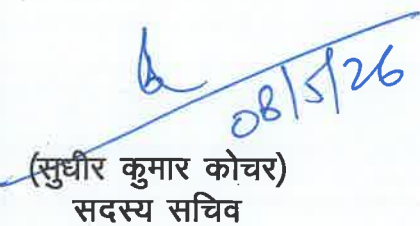 08/5/26
(सुधीर कुमार कोचर)
सदस्य सचिव